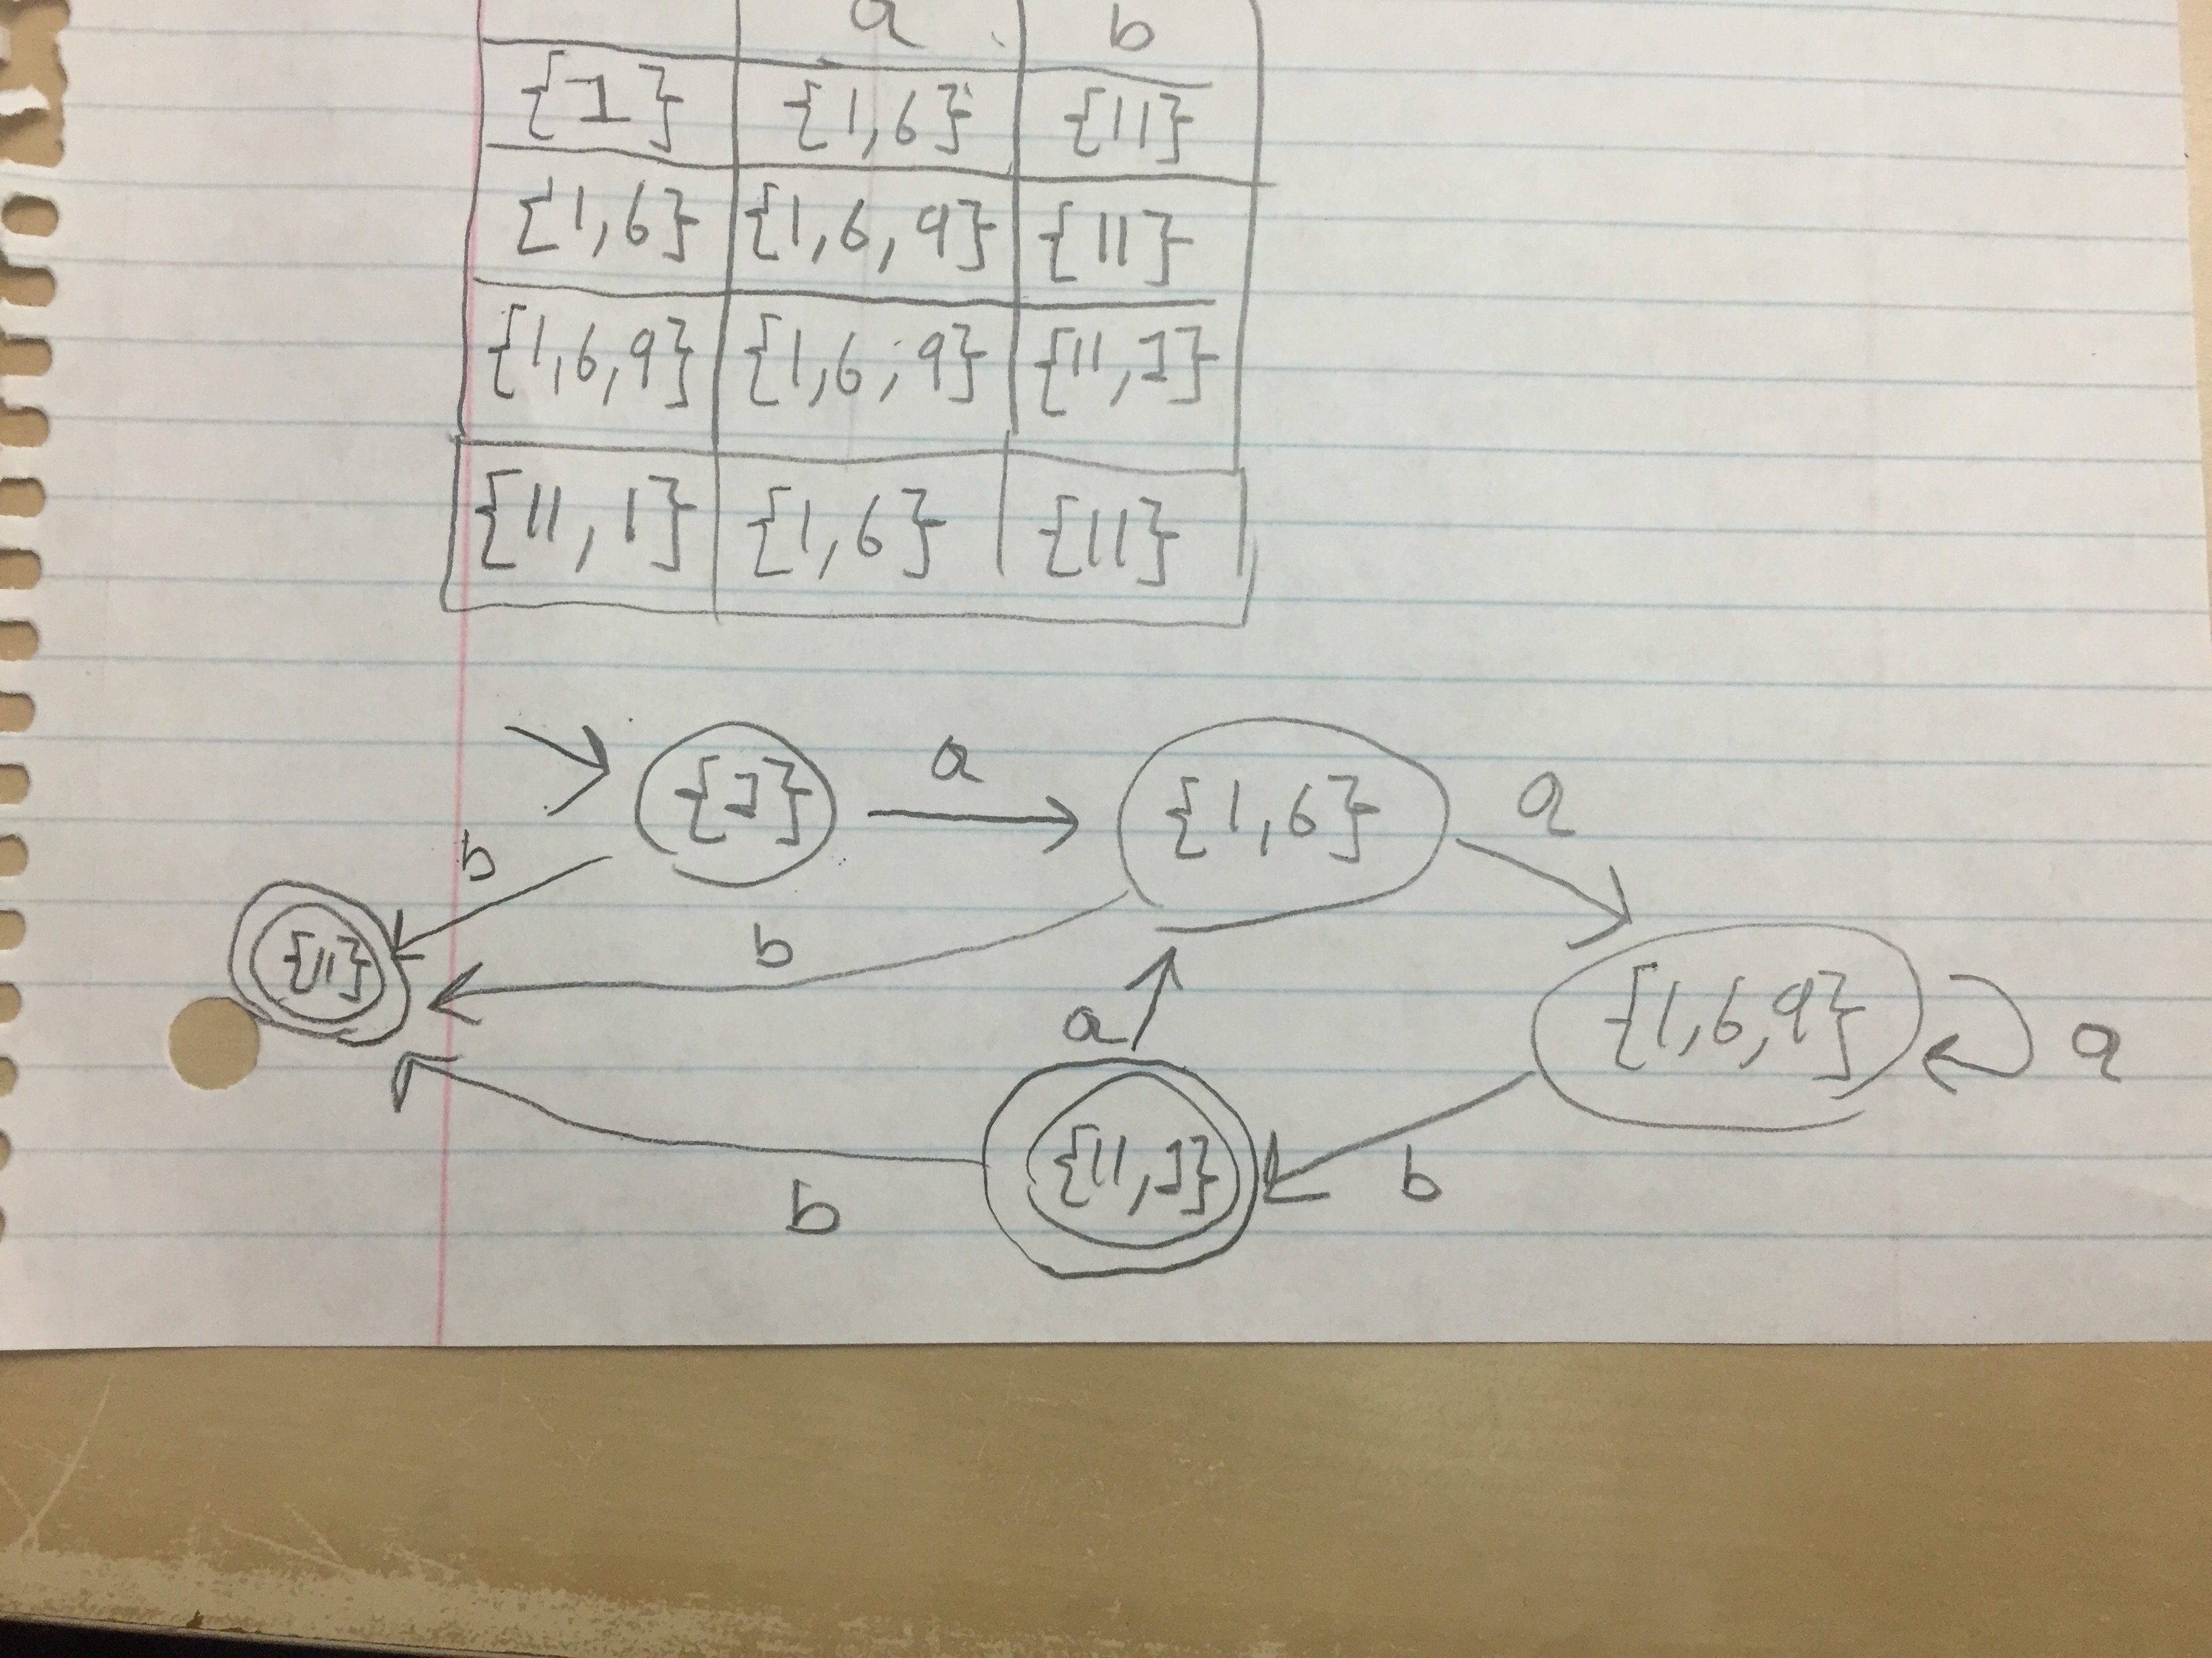 a b
{1} {1,6} {11}
{1,6} {1,6,9} {11}
{1,6,9} {1,6,9} {11,1}
{11,1} {1,6} {11}
{1} a {1,6} a
b
{11} b a {1,6,9} a
{11,1} b
b